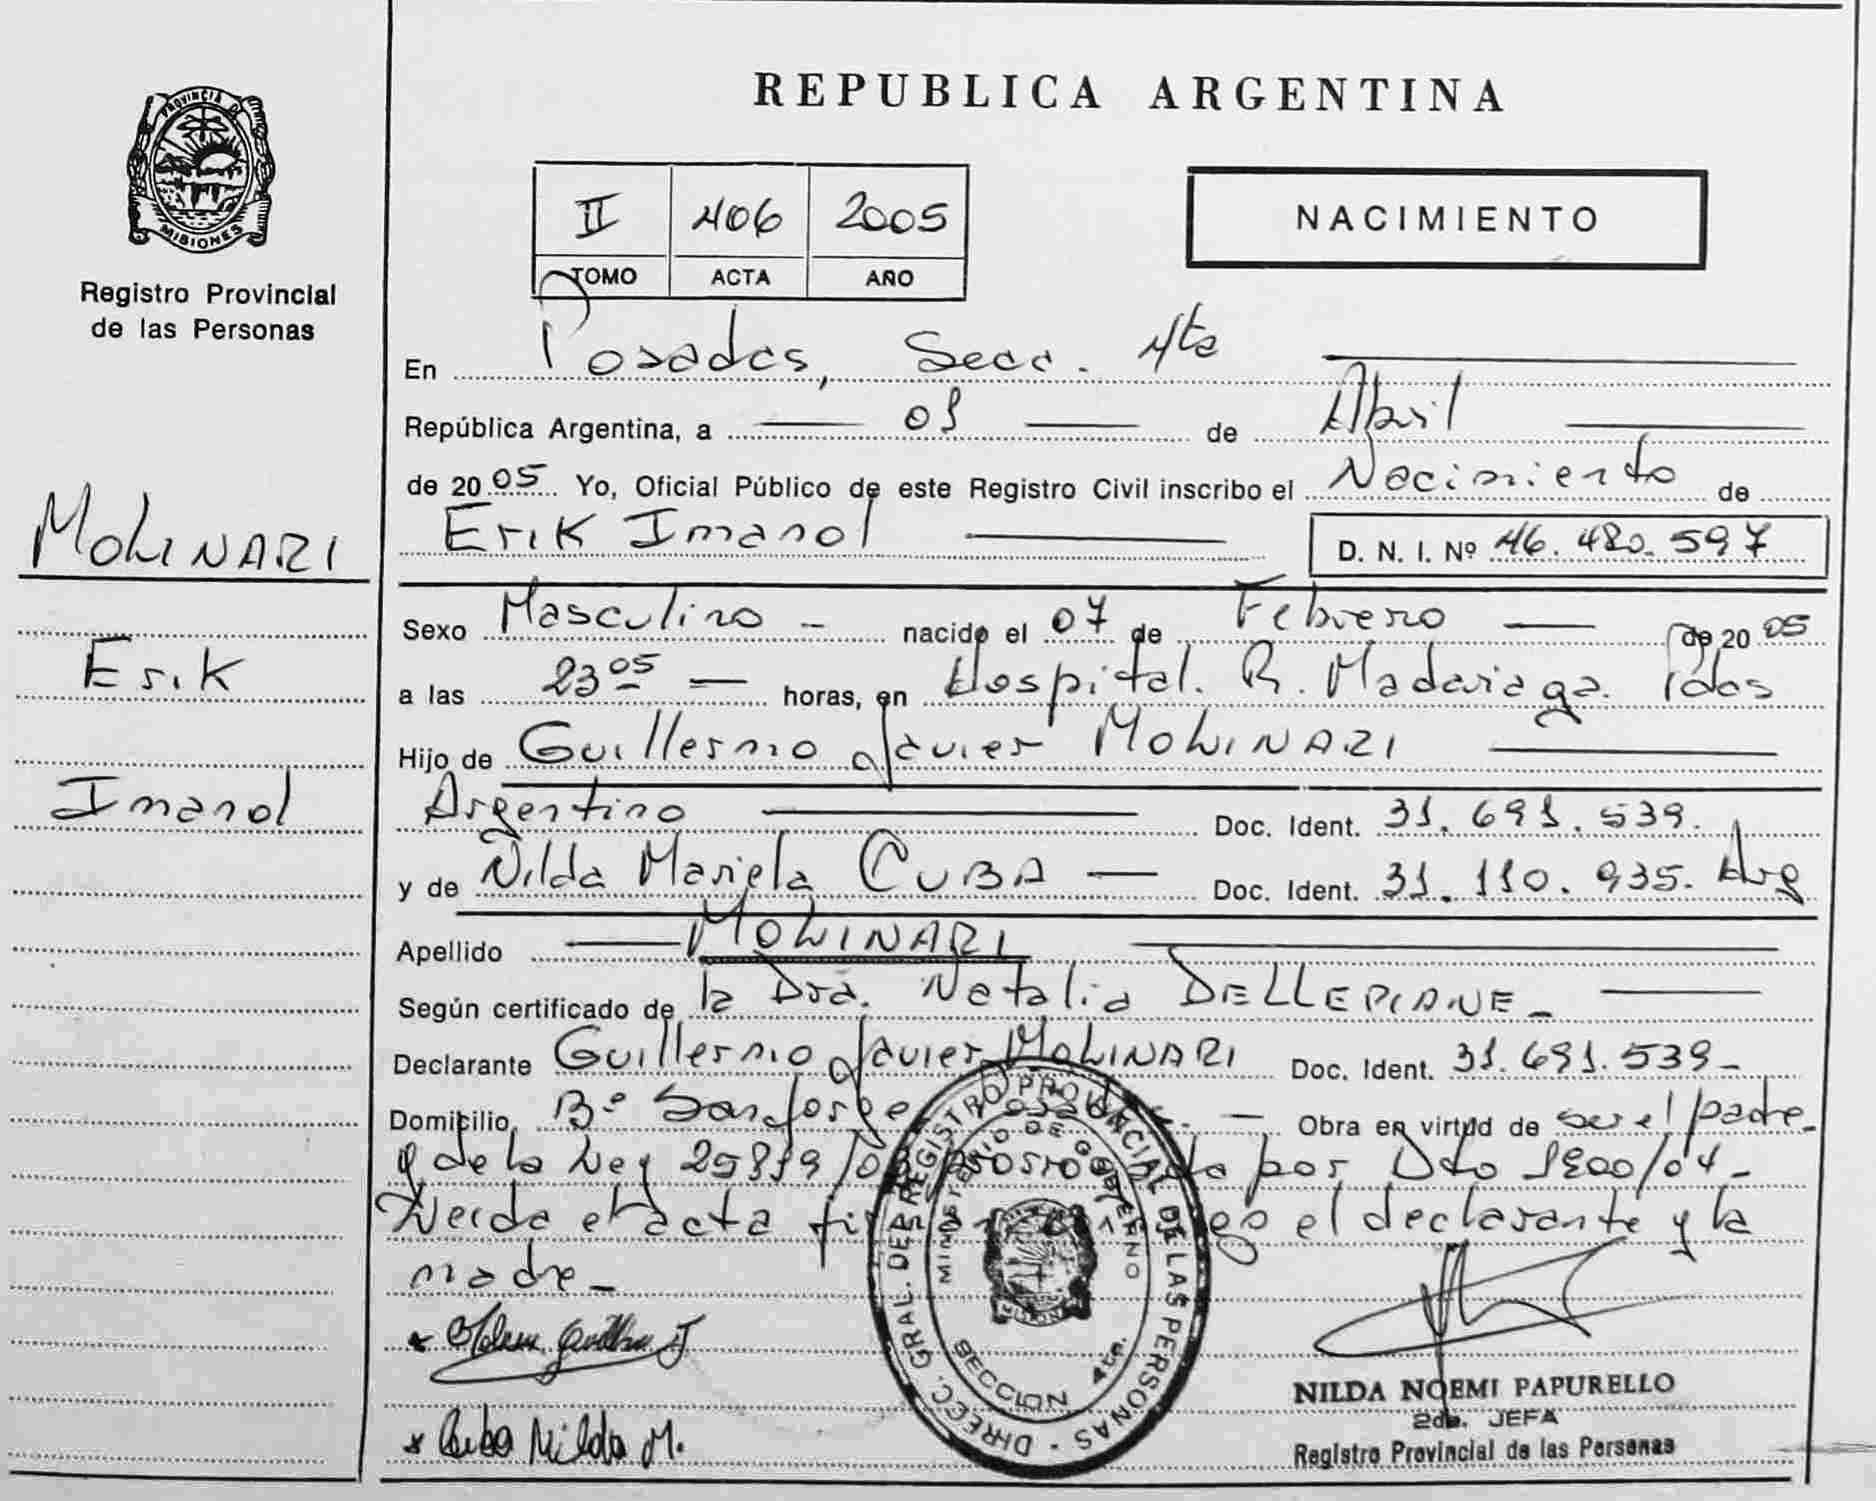 PROVINCIA DE
MISIONES
Registro Provincial
de las Personas
MOLINARI
Erik
Imanol
REPUBLICA ARGENTINA
II 406 2005
TOMO ACTA AÑO
NACIMIENTO
En Posadas, Secc. 4ta
República Argentina, a 01 de Abril
de 2005 Yo, Oficial Público de este Registro Civil inscribo el Nacimiento de
Erik Imanol D. N. I. Nº 46.480.597
Sexo Masculino - nacido el 07 de Febrero de 2005
a las 23 05 horas, en Hospital. R. Madariaga. Pdas
Hijo de Guillermo Javier MOLINARI
Argentino Doc. Ident. 31.691.539.
y de Nilda Mariela CUBA Doc. Ident. 31.110.935. Arg
Apellido MOLINARI
Según certificado de la Dra. Natalia DELLEPIANE -
Declarante Guillermo Javier MOLINARI Doc. Ident. 31.691.539 -
Domicilio Bº San Jorge Posadas - Obra en virtud de ser el padre
y de la Ley 25819/03 por Dto 1900/04 -
Leida el acta el declarante y la
madre -
Cuba Nilda M.
DIRECC. GRAL. DEL REGISTRO PROVINCIAL DE LAS PERSONAS
MINISTERIO DE GOBIERNO
SECCION 4ta.
NILDA NOEMI PAPURELLO
2da. JEFA
Registro Provincial de las Personas